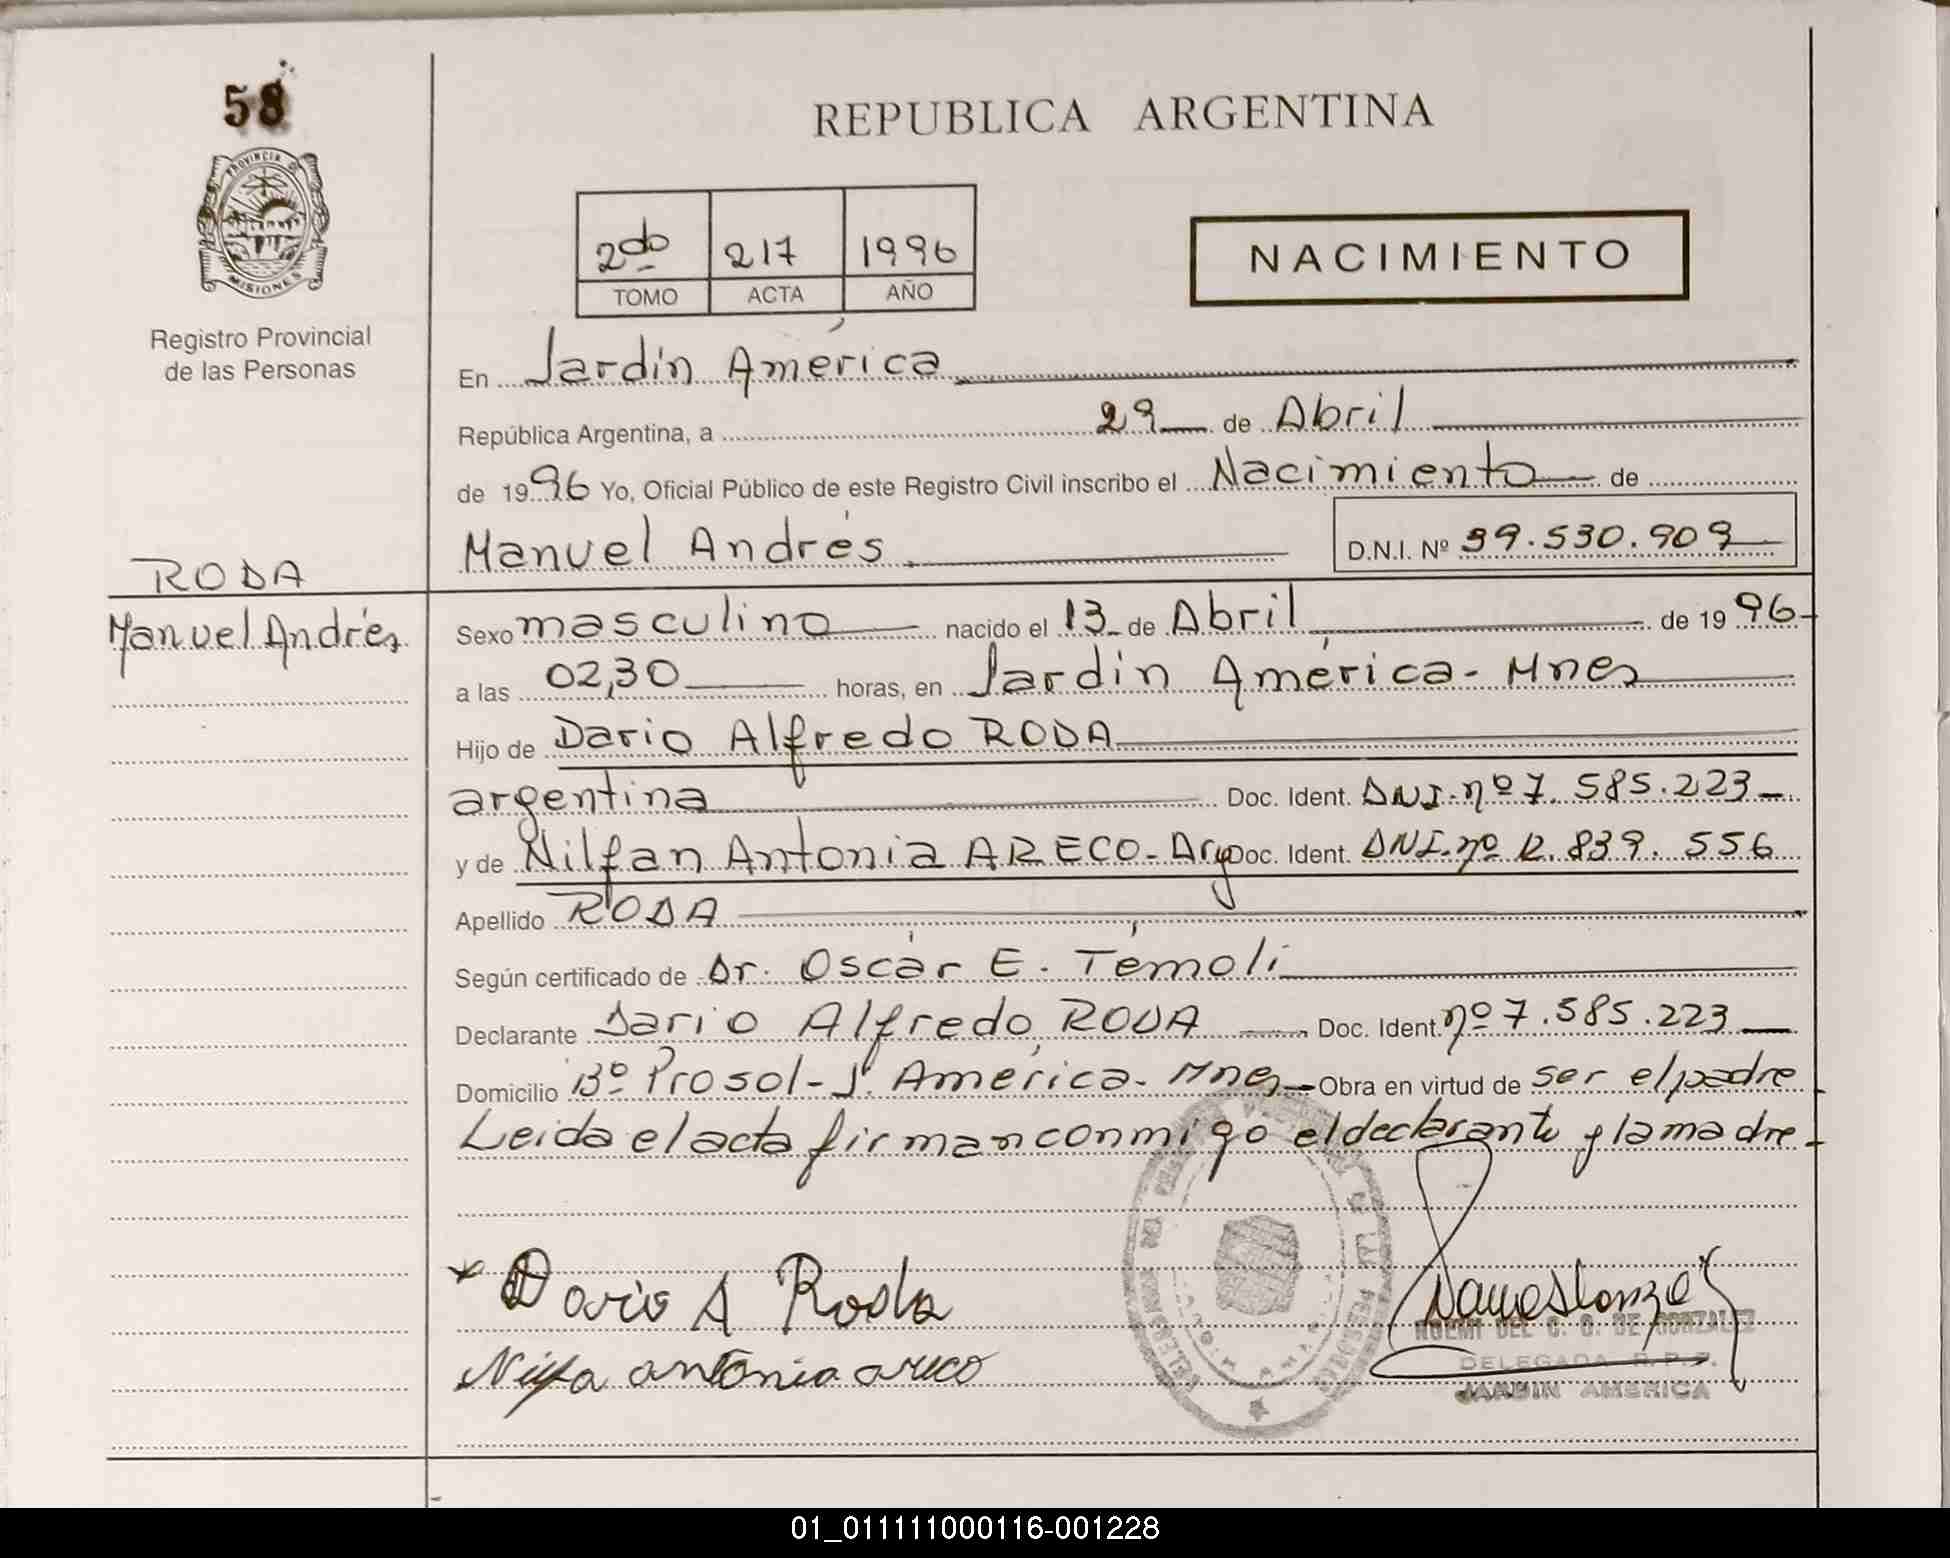 58
PROVINCIA DE
MISIONES
Registro Provincial
de las Personas
RODA
Manuel Andrés
REPUBLICA ARGENTINA
2do 217 1996
TOMO ACTA AÑO
NACIMIENTO
En Jardín América
República Argentina, a 29 de Abril
de 1996 Yo, Oficial Público de este Registro Civil inscribo el Nacimiento de
Manuel Andrés D.N.I. Nº 39.530.909
Sexo masculino nacido el 13 de Abril de 1996
a las 02,30 horas, en Jardín América - Mnes
Hijo de Dario Alfredo RODA
argentina Doc. Ident. DNI. nº 7.585.223
y de Nilfan Antonia ARECO - Arg Doc. Ident. DNI. nº 12.839.556
Apellido RODA
Según certificado de Dr. Oscár E. Témoli
Declarante Dario Alfredo RODA Doc. Ident. nº 7.585.223
Domicilio Bº Prosol - J. América - Mnes Obra en virtud de ser el padre
Leida el acta firman conmigo el declarante y la madre
Dario A Roda
Nilfa antonia areco
NOEMI DEL C. G. DE GONZALEZ
DELEGADA R.P.P.
JARDIN AMERICA
01_011111000116-001228